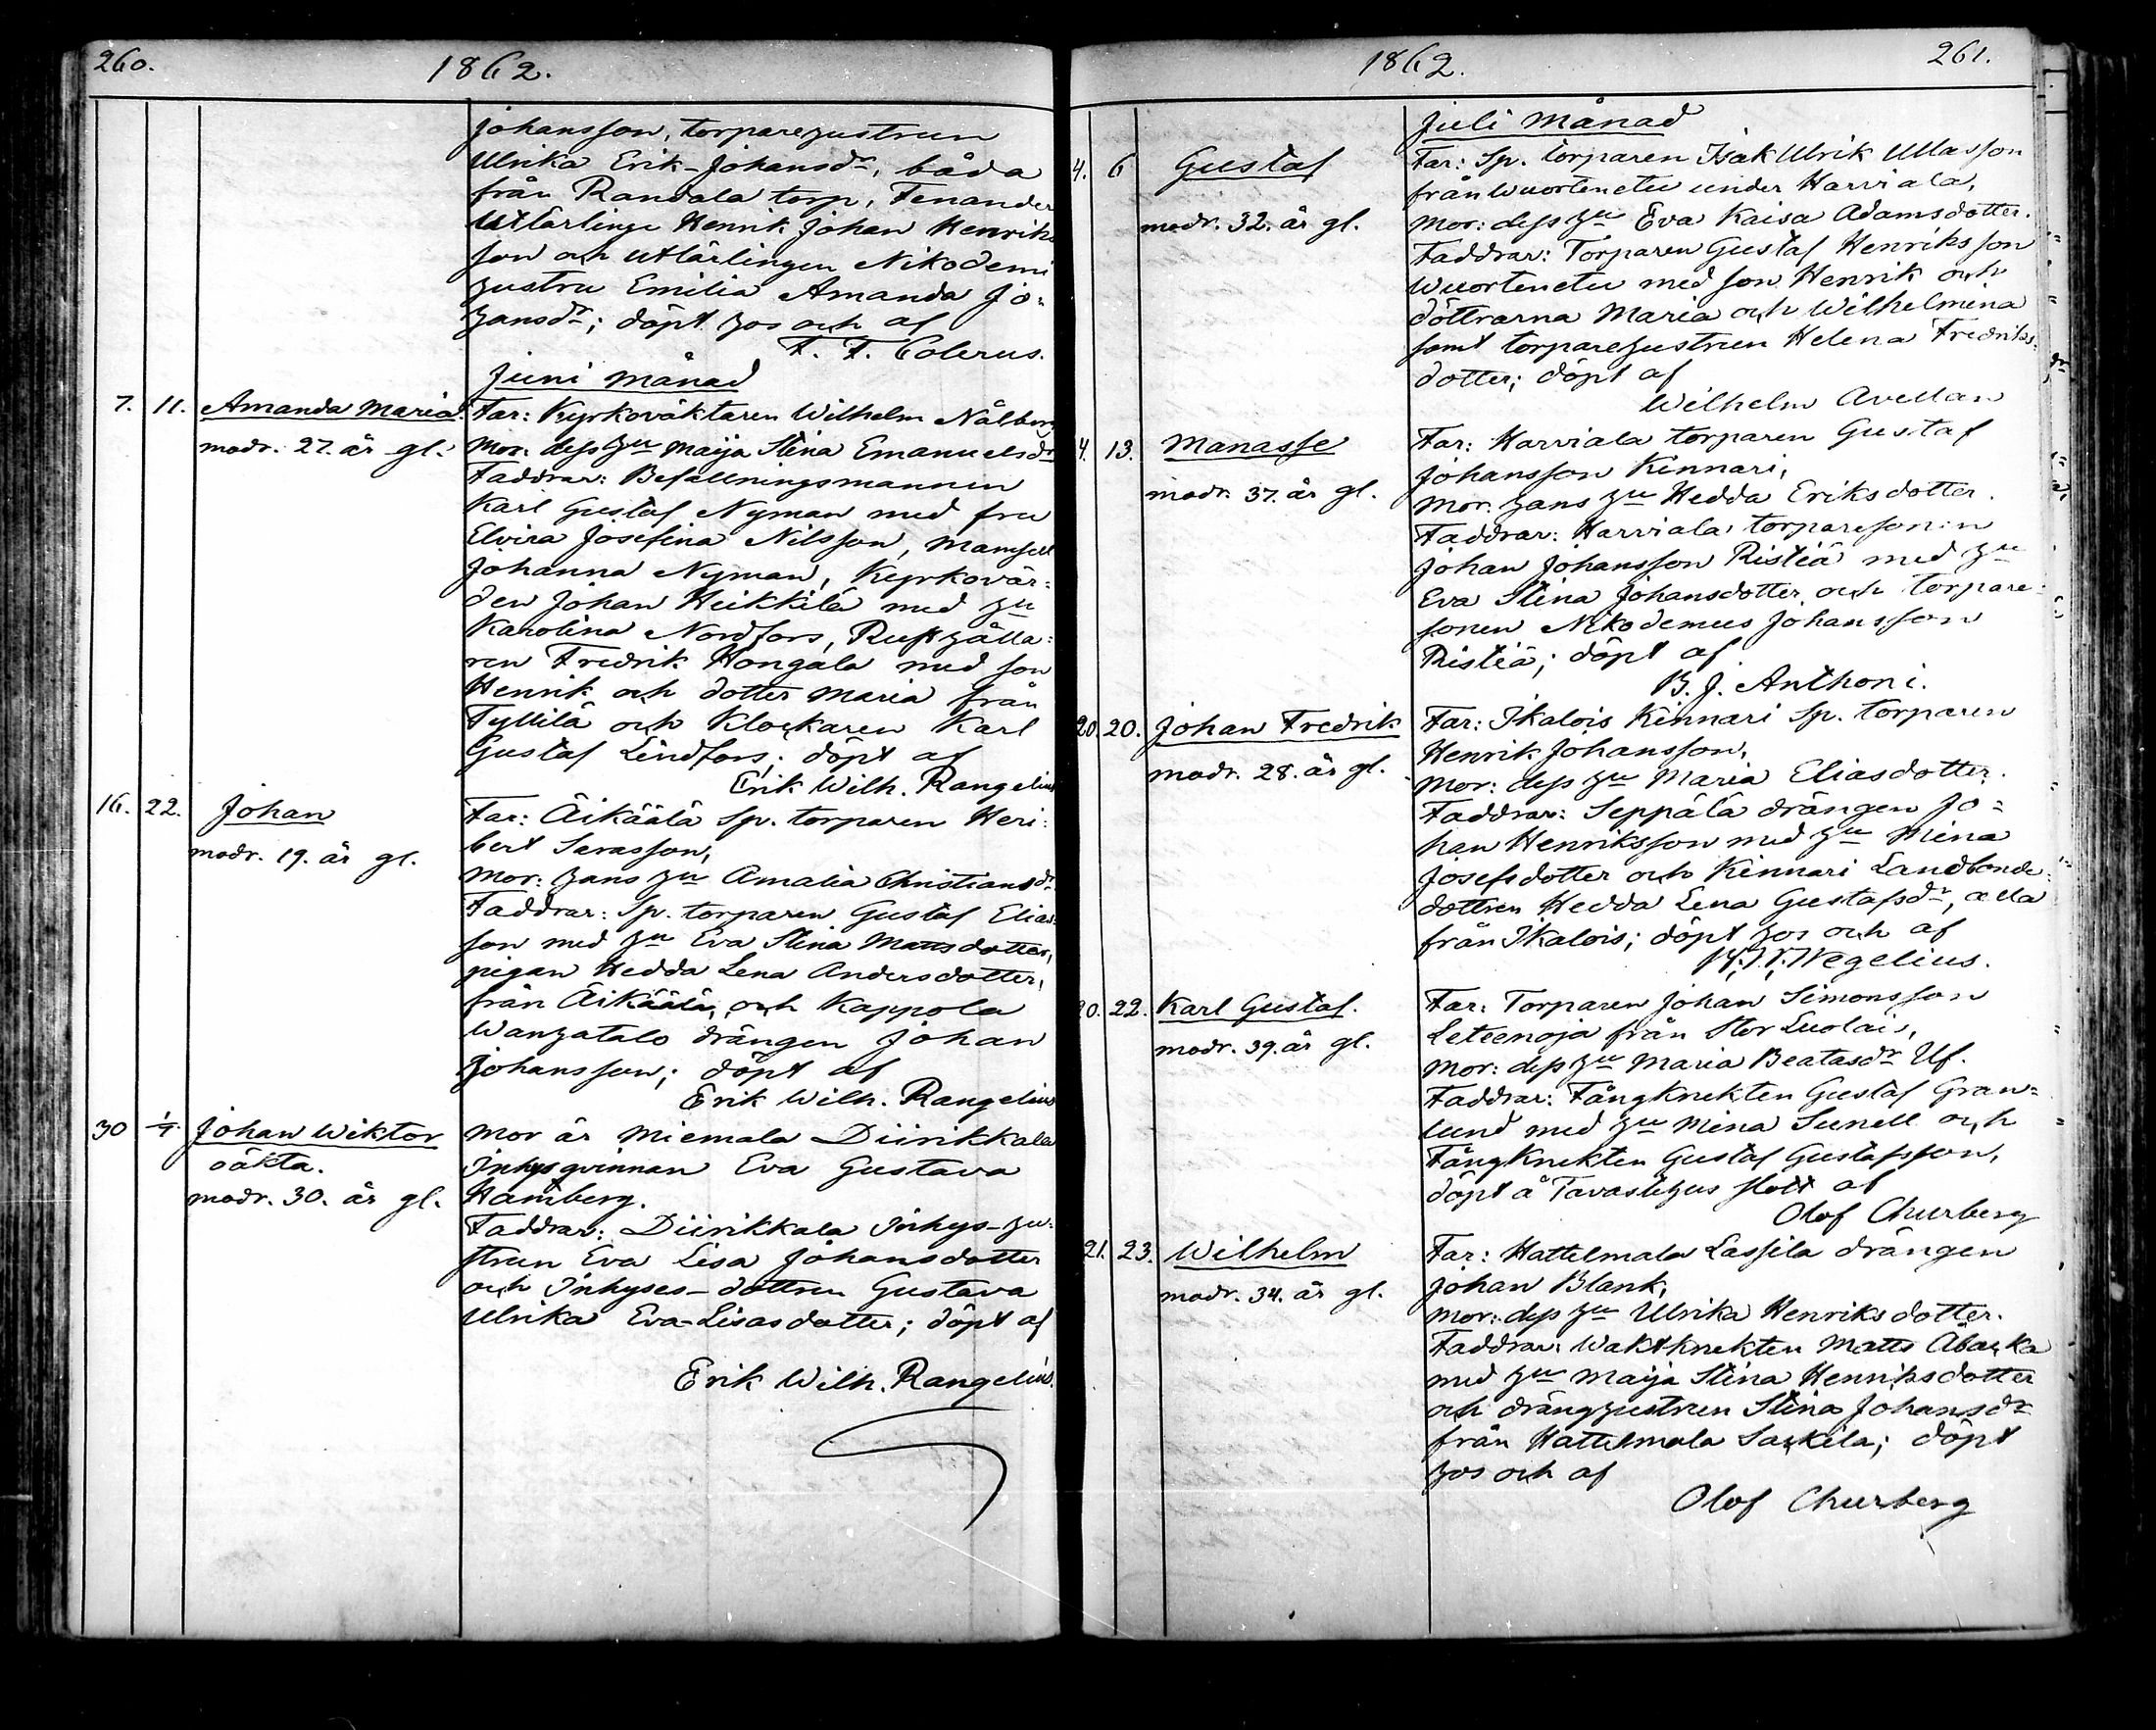 260.
1862.
Johansson, torparezustrun
Ulrika Erik-Johansdr, båda
från Randala torp, Fenander
Utlärlinge Henrik Johan Henriks
son och utlärlingen Nikodemi
zustru Emilia Amanda Jo=
zansdr; döpt zos och af
F. F. Colerus.
Juni månad
7. 11. Amanda Maria.
modr. 27. år gl.
Far: Kyrkoväktaren Wilhelm Nålberg
Mor. dess zu Maija Stina Emanuelsdr
Faddrar: Befallningsmannen
Karl Gustaf Nyman med fru
Elvira Josefina Nilsson, mamsell
Johanna Nyman, Kyrkovär=
den Johan Heikkilä med zu
Karolina Nordfors, Rustzålla=
ren Fredrik Hongala med son
Henrik och dotter Maria från
Tyllilä och Klockaren Karl
Gustaf Lindfors; döpt af
Erik Wilh. Rangelius
16. 22. Johan
modr. 19. år gl.
Far: Äikäälä Sp. torparen Heri=
bert Sarasson,
Mor: zans zu Amalia Christiansdr
Faddrar: Sp. torparen Gustaf Elias=
son med zu Eva Stina Mattsdotter,
pigan Hedda Lena Andersdotter,
från Äikäälä, och Kappola
Wanzatalo drängen Johan
Johansson; döpt af
Erik Wilh. Rangelius
30 1/7. Johan Wiktor
oäkta.
modr. 30. år gl.
Mor är Miemala Diirikkala
Inhysqvinnan Eva Gustava
Hamberg.
Faddrar: Diirikkala Inhys-zu=
strun Eva Lisa Johansdotter
och Inhyses-dottren Gustava
Ulrika Eva-Lisasdotter; döpt af
Erik Wilh. Rangelius.
1862.
261.
Juli månad
4. 6 Gustaf
modr. 32. år gl.
Far: Sp. torparen Isak Ulrik Ullasson
från Wuortenetu under Harviala,
Mor: dess zu Eva Kaisa Adamsdotter.
Faddrar: Torparen Gustaf Henriksson
Wuortenetu med son Henrik och
döttrarna Maria och Wilhelmina
samt torparezustrun Helena Fredriks=
dotter; döpt af
Wilhelm Avellan
4. 13. Manasse
modr. 37. år gl.
Far: Harviala torparen Gustaf
Johansson Kinnari,
Mor. zans zu Hedda Eriksdotter.
Faddrar: Harviala, torparesonen
Johan Johansson Ristiä med zu
Eva Stina Johansdotter och torpare=
sonen Nikodemus Johansson
Ristiä; döpt af
B. J. Anthoni.
20. 20. Johan Fredrik
modr. 28. år gl.
Far: Ikalois Kinnari Sp. torparen
Henrik Johansson,
Mor: dess zu Maria Eliasdotter.
Faddrar: Seppälä drängen Jo=
han Henriksson med zu Mina
Josefsdotter och Kinnari Landbonde=
dottren Hedda Lena Gustafsdr, alla
från Ikalois; döpt zos och af
Wegelius.
20. 22. Karl Gustaf.
modr. 39. år gl.
Far: Torparen Johan Simonsson
Leteenoja från Stor Luolais,
Mor: dess zu Maria Beatasdr Uf.
Faddrar: Fångknekten Gustaf Gran=
lund med zu Mina Sunell och
Fångknekten Gustaf Gustafsson,
döpt å Tavastezus slott af
Olof Churberg
21. 23. Wilhelm
modr. 34. år gl.
Far: Hattelmala Lassila drängen
Johan Blank,
Mor: dess zu Ulrika Henriksdotter.
Faddrar: Waktknekten Matts Åbacka
med zu Maija Stina Henriksdotter
och drängzustrun Stina Johansdr
från Hattelmala Sackila; döpt
zos och af
Olof Churberg